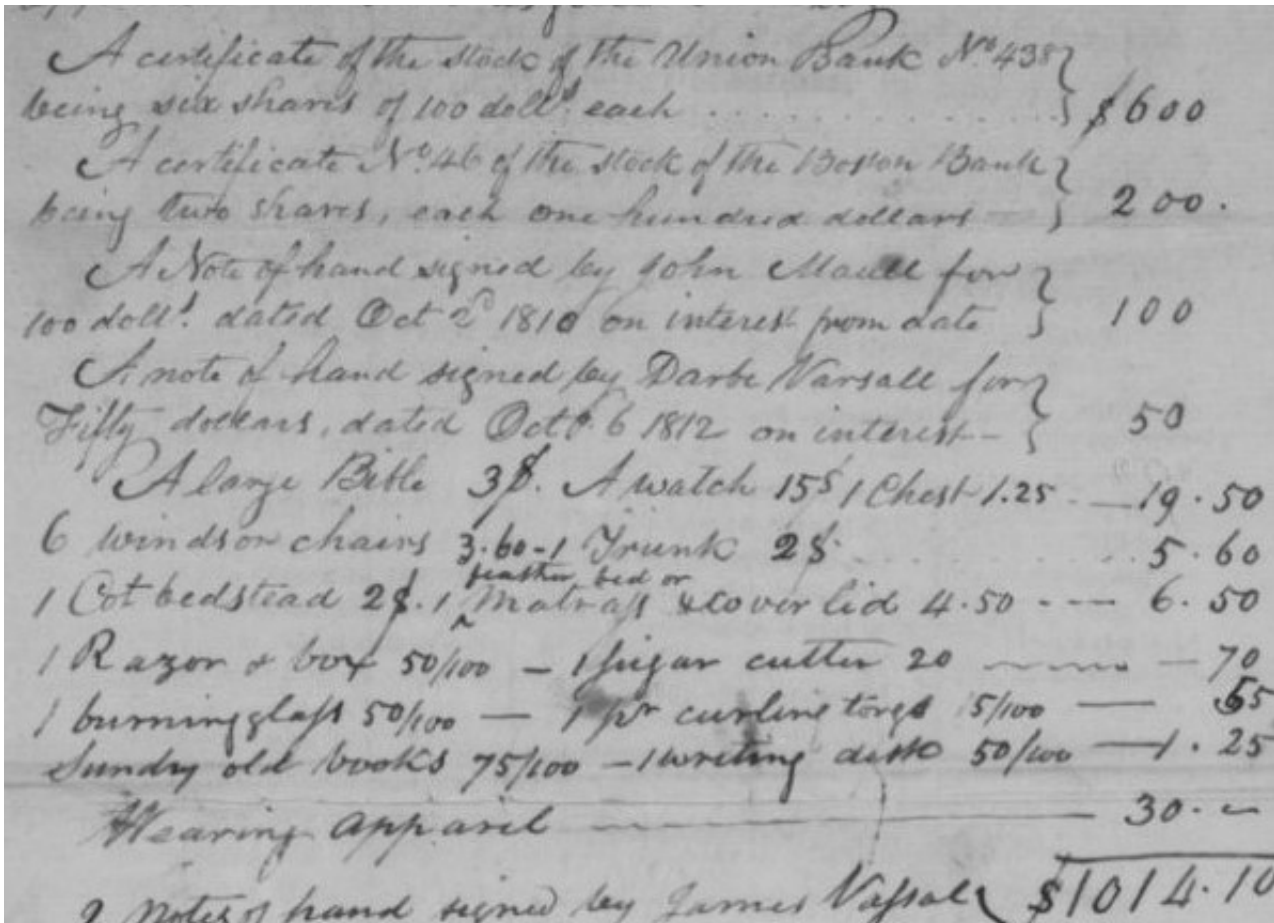 A certificate of the stock of the Union Bank No. 438
being six shares of 100 dolls. each . . . . . . . . . . $600
A certificate No. 46 of the stock of the Boston Bank
being two shares, each one hundred dollars 200.
A Note of hand signed by John for
100 dolls. dated Oct 2d 1810 on interest from date 100
A note of hand signed by Darbe Varsall for
Fifty dollars, dated Octr. 6 1812 on interest — 50
A large Bible 3$. A watch 15$ 1 Chest 1.25 — 19.50
6 windsor chairs 3.60 - 1 Trunk 2$ . . . . . . 5.60
feather bed or
1 Cot bedstead 2$. 1 ^ Matrass & coverlid 4.50 - - — 6.50
1 Razor & box 50/100 — 1 sugar cutter 20 — 70
1 burning glass 50/100 — 1 pr curling tongs 15/100 — 65
Sundry old books 75/100 — 1 writing desk 50/100 — 1.25
Wearing apparil — 30. —
$1014.10
2 Notes of hand signed by James Vassal